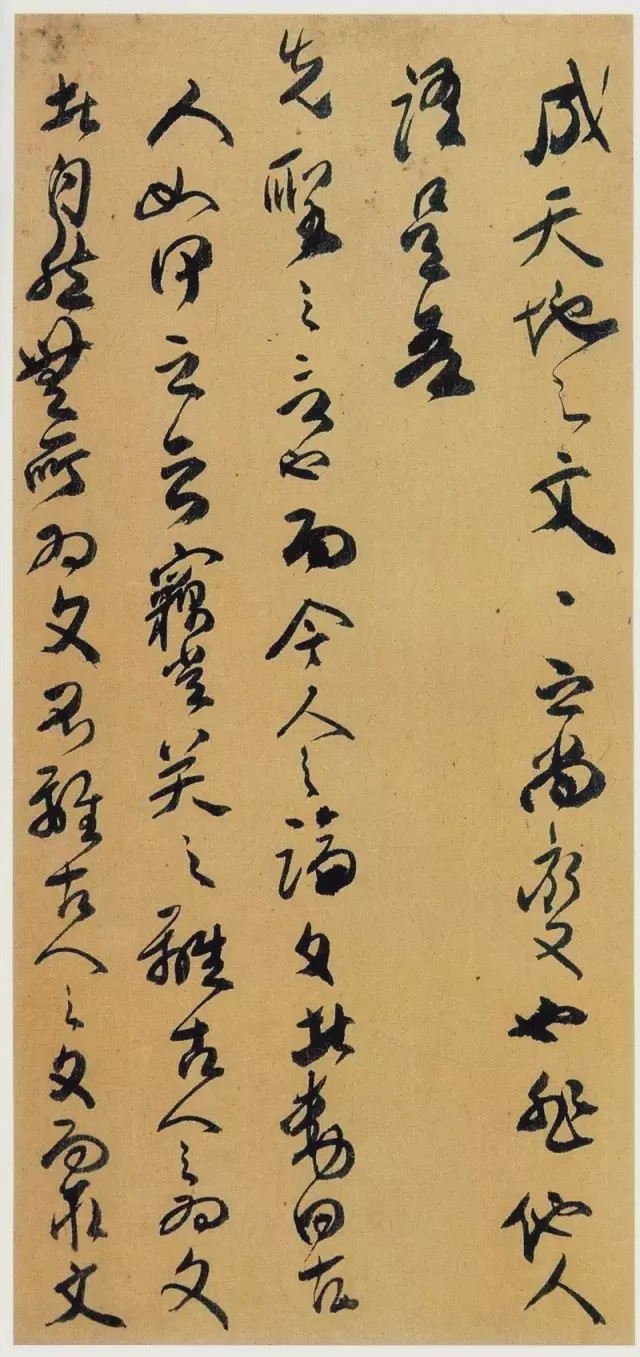 成天地之文〻之尚變也非他人
語是吾
先聖之言也而今人之論文者動曰古
人如何云竊嘗笑之雖古人之為文
者自然無所為文雖古人之文而文